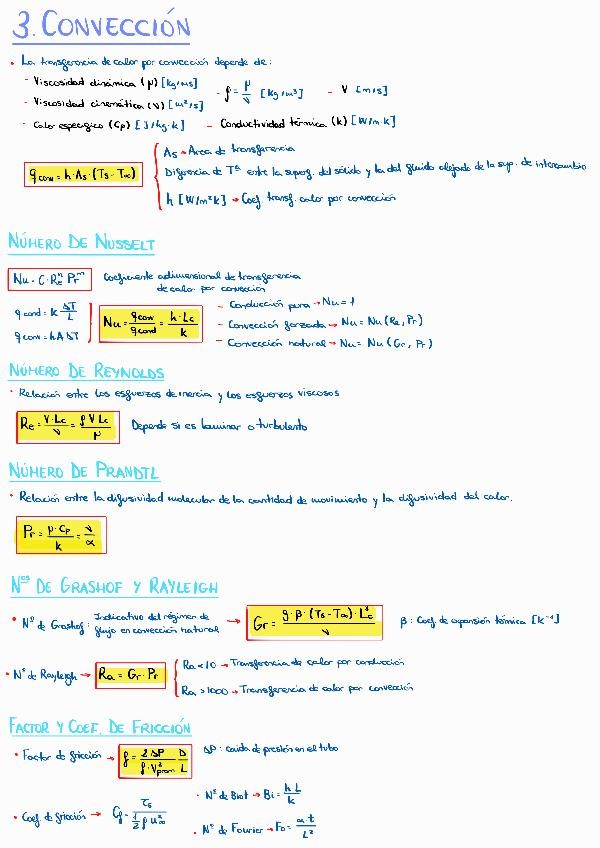 3. CONVECCIÓN
• La transferencia de calor por convección depende de:
- Viscosidad dinámica (μ) [kg/ms] - ρ = μ/ν [kg/m³] - V [m/s]
- Viscosidad cinemática (ν) [m²/s]
- Calor específico (Cp) [J/kg·k] - Conductividad térmica (k) [W/m·k]
q conv = h·As·(Ts - T∞)
As → Área de transferencia
Diferencia de Tª entre la superf. del sólido y la del fluido alejado de la sup. de intercambio
h [W/m²k] → Coef. transf. calor por convección
NÚMERO DE NUSSELT
Nu = C·Re^n Pr^m Coeficiente adimensional de transferencia
de calor por convección
q cond = k ΔT/L
q conv = hAΔT
Nu = q conv/q cond = h·Lc/k
- Conducción pura → Nu = 1
- Convección forzada → Nu = Nu (Re, Pr)
- Convección natural → Nu = Nu (Gr, Pr)
NÚMERO DE REYNOLDS
• Relación entre los esfuerzos de inercia y los esfuerzos viscosos
Re = V·Lc/ν = ρ V Lc/μ Depende si es laminar o turbulento
NÚMERO DE PRANDTL
• Relación entre la difusividad molecular de la cantidad de movimiento y la difusividad del calor.
Pr = μ·Cp/k = ν/α
Nos DE GRASHOF Y RAYLEIGH
• Nº de Grashof: Indicativo del régimen de
flujo en convección natural
→ Gr = g·β·(Ts - T∞)·Lc³/ν β: Coef. de expansión térmica [K⁻¹]
• Nº de Rayleigh → Ra = Gr·Pr
Ra < 10 → Transferencia de calor por conducción
Ra > 1000 → Transferencia de calor por convección
FACTOR Y COEF. DE FRICCIÓN
• Factor de fricción → f = 2ΔP/ρ·V²prom D/L ΔP: caída de presión en el tubo
• Coef. de fricción → Cf = τs/½ρu²∞
• Nº de Biot → Bi = hL/k
• Nº de Fourier → Fo = α·t/L²